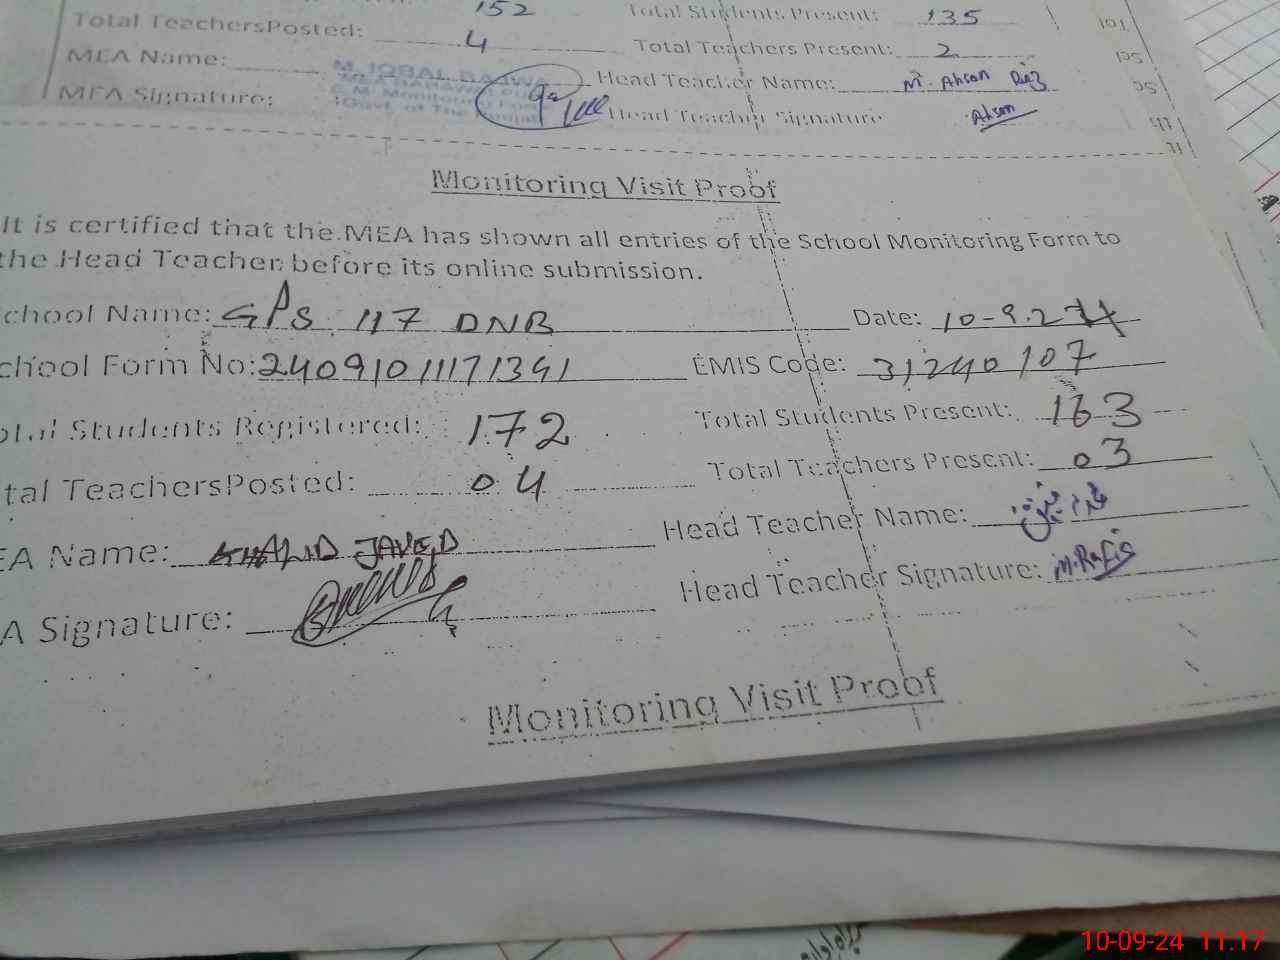 152 Total Students Present: 135
Total TeachersPosted: 4 Total Teachers Present: 2
MEA Name: M. IQBAL BAJWA Head Teacher Name: M. Ahsan Riaz
MEA Signature: Head Teacher Signature Ahsan
Monitoring Visit Proof
It is certified that the MEA has shown all entries of the School Monitoring Form to
the Head Teacher before its online submission.
chool Name: GPS 117 DNB Date: 10-9.24
chool Form No: 24091011171391 EMIS Code: 31240107
otal Students Registered: 172 Total Students Present: 163
tal TeachersPosted: 04 Total Teachers Present: 03
EA Name: KHALID JAVED Head Teacher Name:
A Signature: Head Teacher Signature: M.Rafiq
Monitoring Visit Proof
10-09-24 11.17